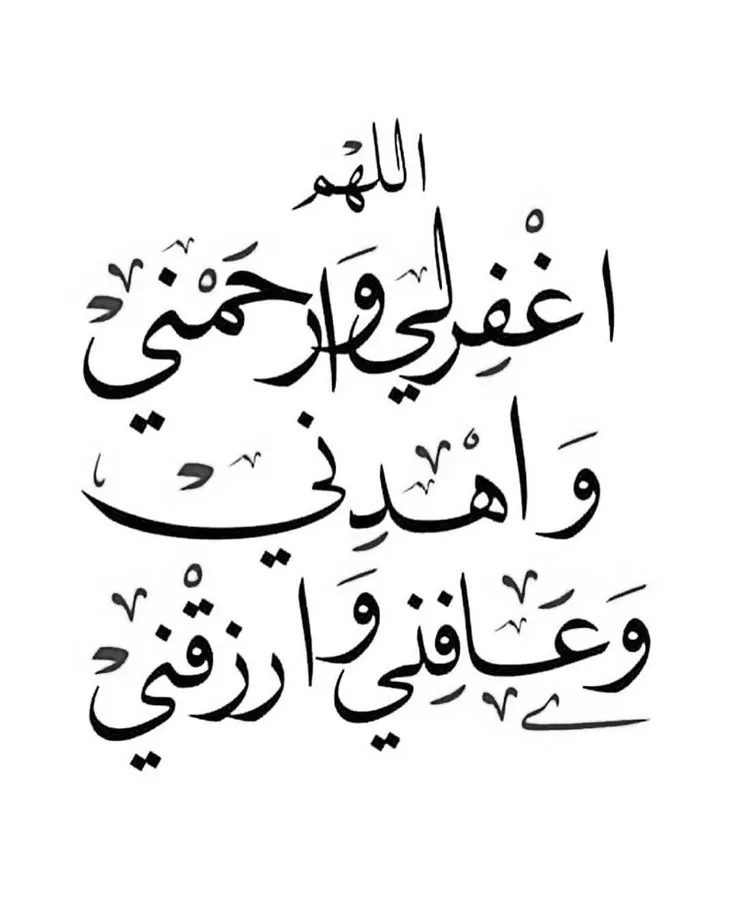 اللهم
اغْفِر لي وَارحَمْني
وَاهْدِني
وَعَافِني وَارزقْني